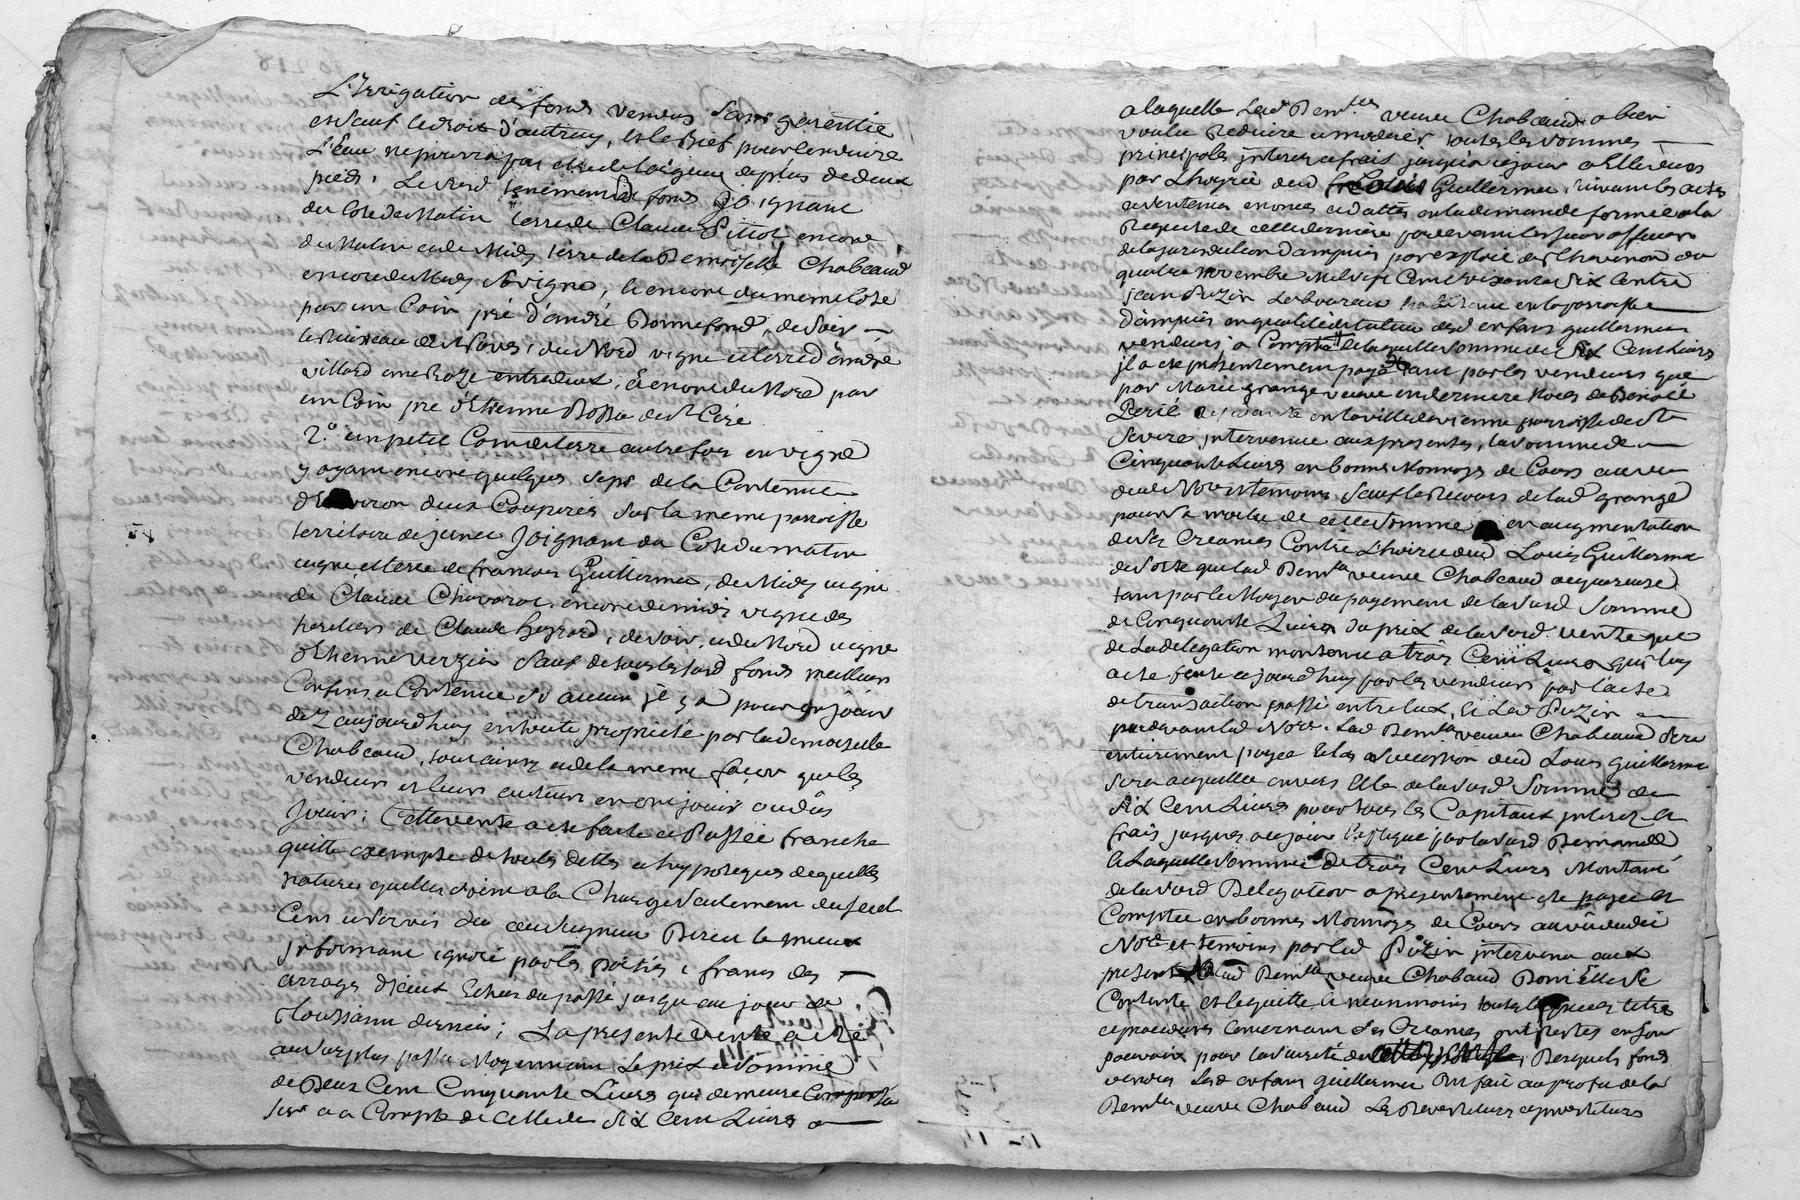 L'Irrigation des fonds vendus sans garentie
et sauf le droit d'autruy, et le Bief pour conduire
L'Eau ne pourra pas etre de largeur de plus de deux
pieds. Le susd tenement de fonds Joignant
du Cote du Matin terre de Claude Pittiot encore
du Matin et de Midy terre de la Demoiselle Chabeaud
encore du Midy vigne, et encore du meme Cote
par un Coin pré d'andré Bonnefond, de soir —
le Ruisseau de, du Nord vigne et terre d'andré
villard une Roze entredeux, et encore du Nord par
un Coin pre d'Etienne de St Cire
2.° un petit Coin de terre autrefois en vigne
y ayant encore quelques seps de la Contenue
d'Environ deux Couperées sur la meme parroisse
territoire de Joignant du Cote du matin
vigne et terre de francois Guillerme, de Midy vigne
de Claude Chavarot, encore de midi vigne des
heritiers de Claude, de soir et de Nord vigne
d'Etienne Verzier sauf de tous les susd fonds meilleurs
Confins et Contenue si aucun il y a pour en jouir
dez aujourdhuy en toute propriété par la demoiselle
Chabeaud, tout ainsy et de la meme facon que les
vendeurs et leurs auteurs en ont joui ou dû
Jouir; Cette vente a eté faite et Passée franche
quitte exempte de toutes dettes et hypoteques de quelles
natures quelles soient a la Charge seulement du seul
Cens et servis du au seigneur Direct le mieux
informant ignoré par les Parties, francs des —
arrerages d'iceux Echus du passé jusqu'au jour de
Toussaint dernier; La presente vente a eté
au surplus passée Moyennant Le prix et somme
de Deux Cent Cinquante Livres qui demeure Compensé
a Compte de celle de six Cent Livres a —
a laquelle Lad Dem.lle veuve Chabeaud a bien
voulu Reduire et moderer toutes les sommes —
principales interets et frais jusqu'a ce jour a Elle dues
par Lhoyrie dud Louis Guillerme suivant les actes
et sentences enoncés et dattés en la demande formée a la
Requete de cette derniere pardevant les sieurs officiers
de la jurisdiction d'ampuis par exploit de Thevenon du
quatre novembre Mil sept Cent soixante six Contre
jean Puzin Laboureur habitant en la parroisse
d'ampuis en qualité de tuteur desd enfans guillerme
vendeurs, a Compte de laquelle somme de six Cent Livres
il a eté presentement payé tant par les vendeurs que
par Marie grange veuve en derniere Noces de Benoit
Perié residante en la ville de vienne parroisse de St
Severe, intervenue aux presentes, la somme de —
Cinquante Livres en bonnes Monnoyes de Cours au vu
de Nore et temoins sauf le Recours de lad grange
pour la moitié de cette somme en augmentation
de ses Creances Contre L'hoirie dud Louis Guillerme
de sorte que lad Dem.lle veuve Chabeaud acquereuse
tant par le Moyen du payement de la susd somme
de Cinquante Livres du prix de la susd vente que
de La delegation montant a trois Cent Livres qui luy
a eté faite ajourd'huy par les vendeurs par l'acte
de transaction passé entre Eux, et Led Puzin —
pardevant led Nore. Lad Dem.lle veuve Chabeaud sera
entierement payee et la succession dud Louis Guillerme
sera acquittée envers Elle de la susd Somme de
Six Cent Livres pour tous les Capitaux interets et
frais jusques au jour par la susd Demande
et Laquelle somme de trois Cent Livres Montant
de la susd Delegation a presentement eté payée et
Comptée en bonnes Monnoyes de Cours au vû dudit
Nore et temoins par led Puzin intervenu aux
presentes a lad Dem.lle veuve Chabaud Dont Elle se
Contente et le quitte et neanmoins toutes les pieces titres
et procedures Concernant ses Creances ont restés en son
pouvoir pour la sureté de, Desquels fonds
vendus Lesd enfans guillerme ont fait au profit de la
Dem.lle veuve Chabaud Les Devestitures et investitures